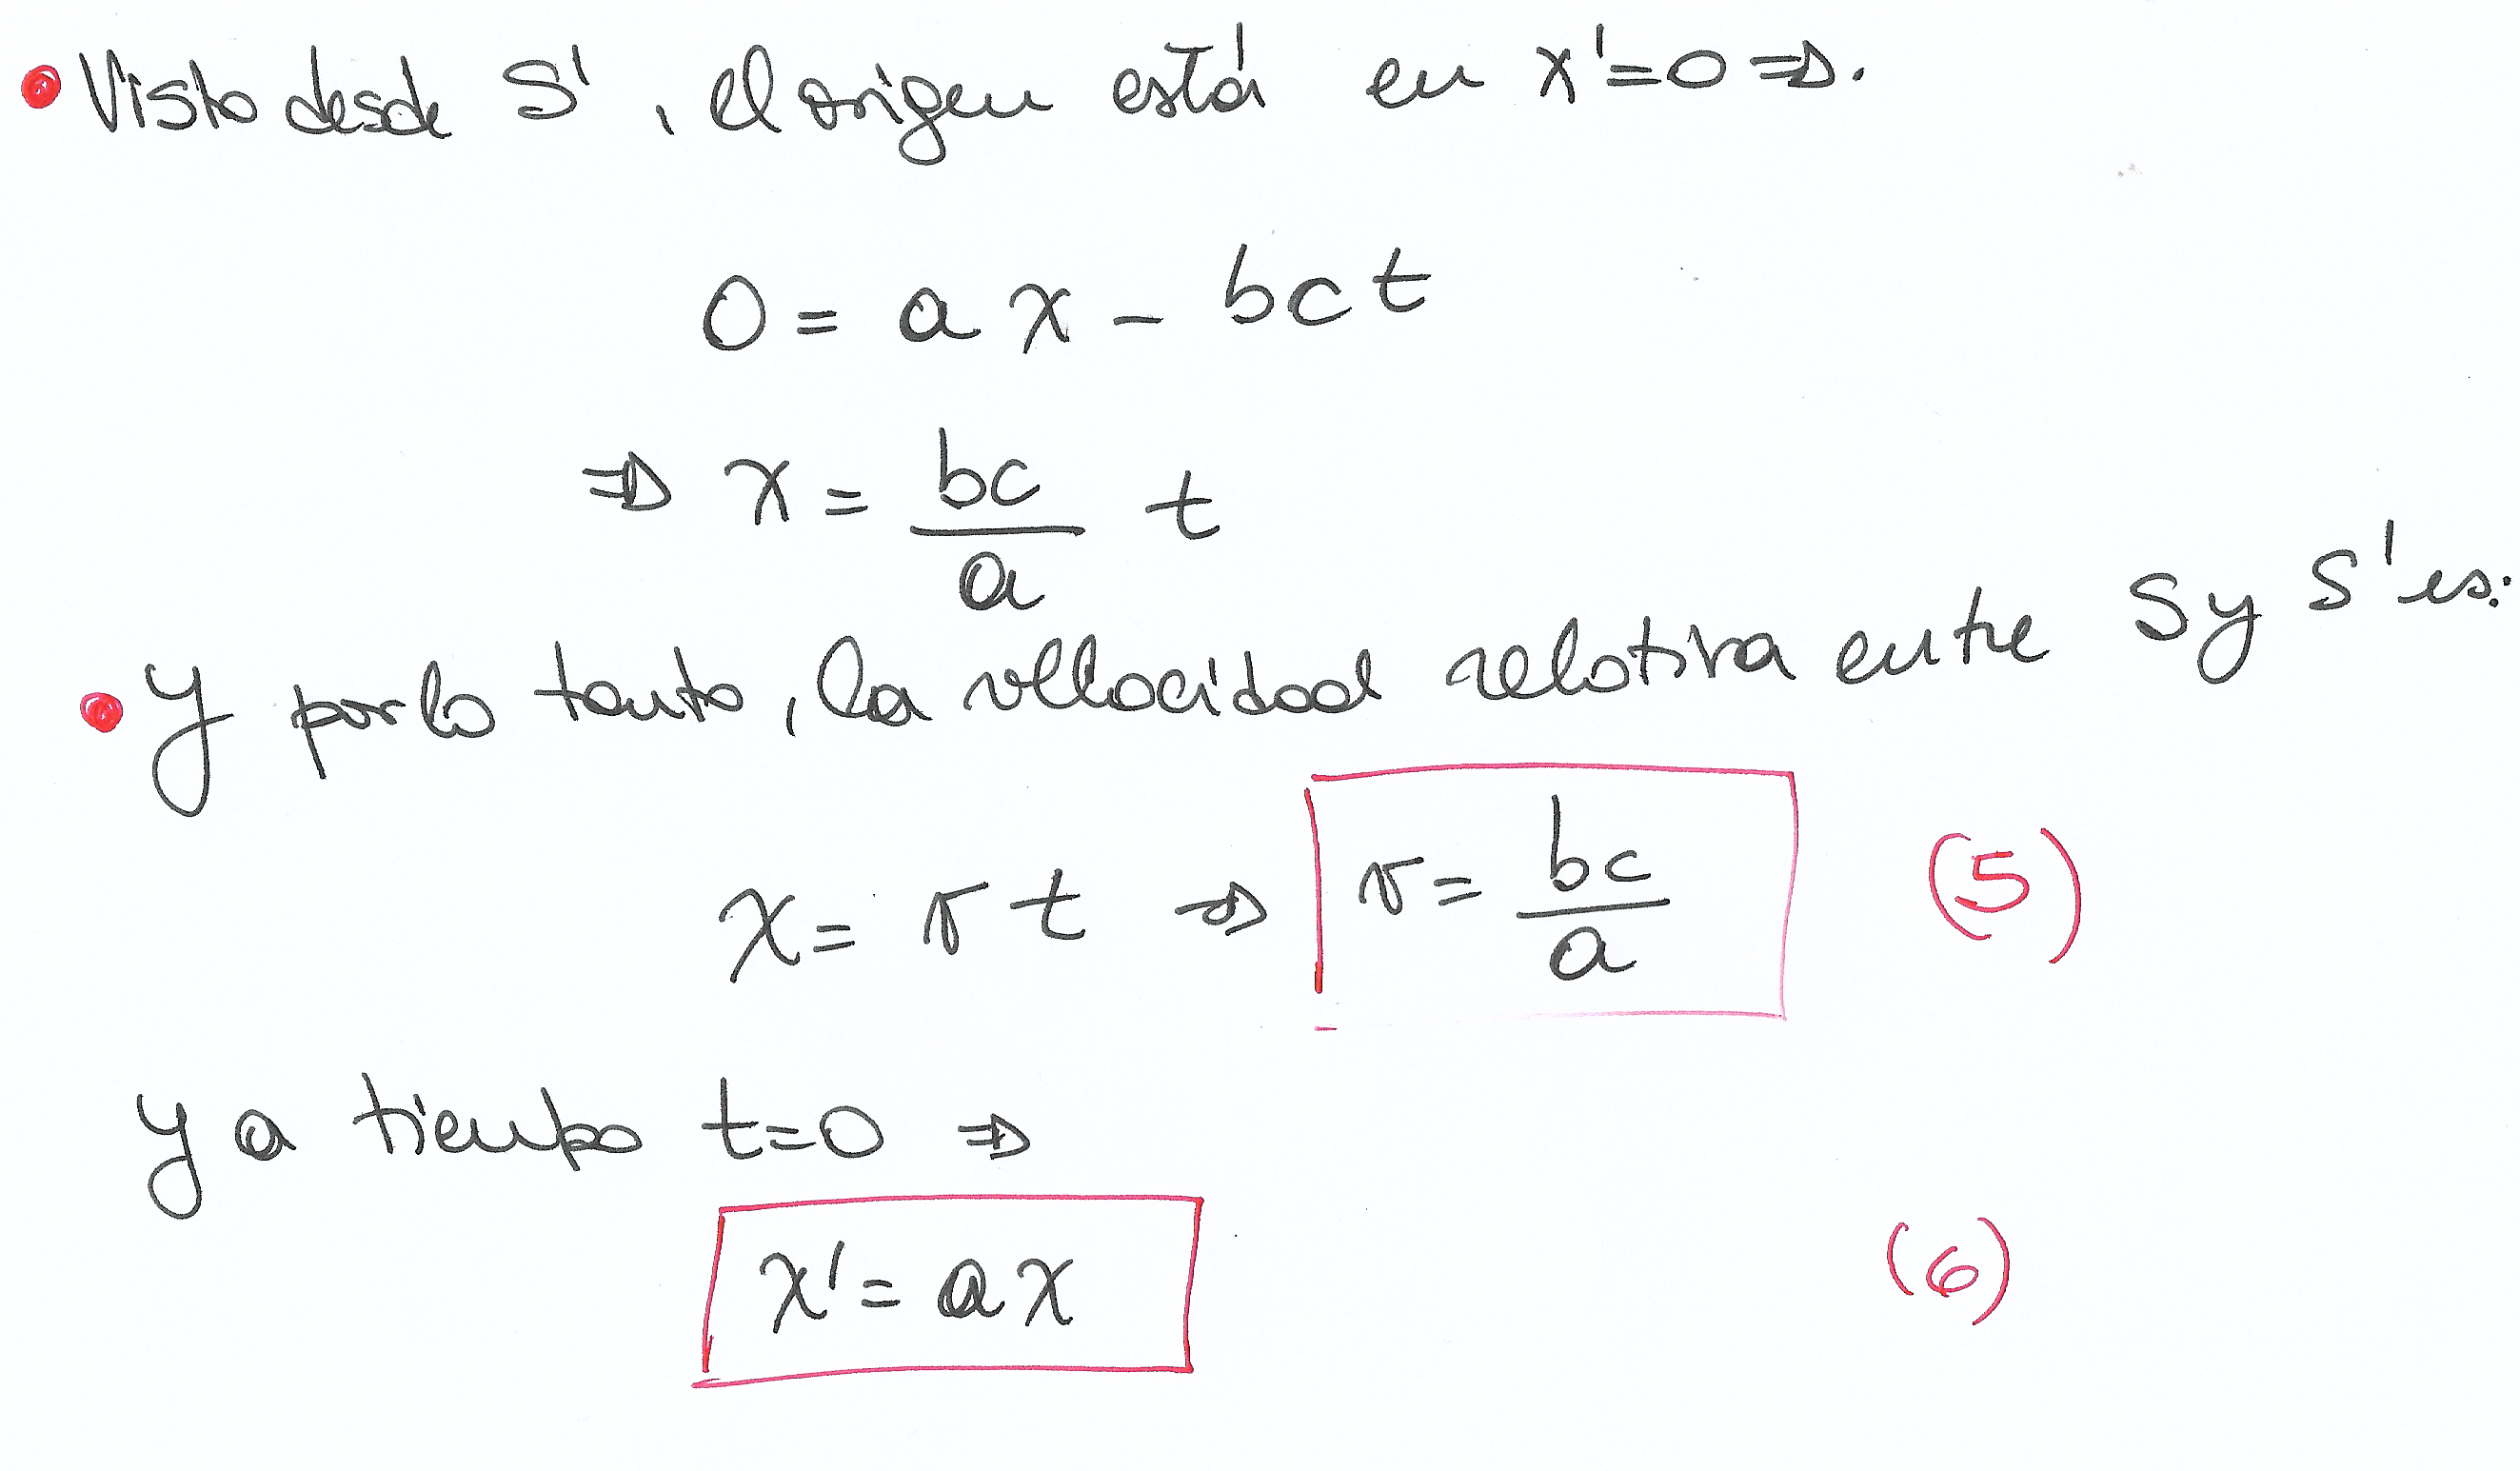 • Visto desde S', el origen está en x'=0 ⇒.
0 = a x - bct
⇒ x = bc/a t
• y por lo tanto, la velocidad relativa entre S y S' es:
x = v t ⇒ v = bc/a (5)
y a tiempo t=0 ⇒
x' = a x (6)